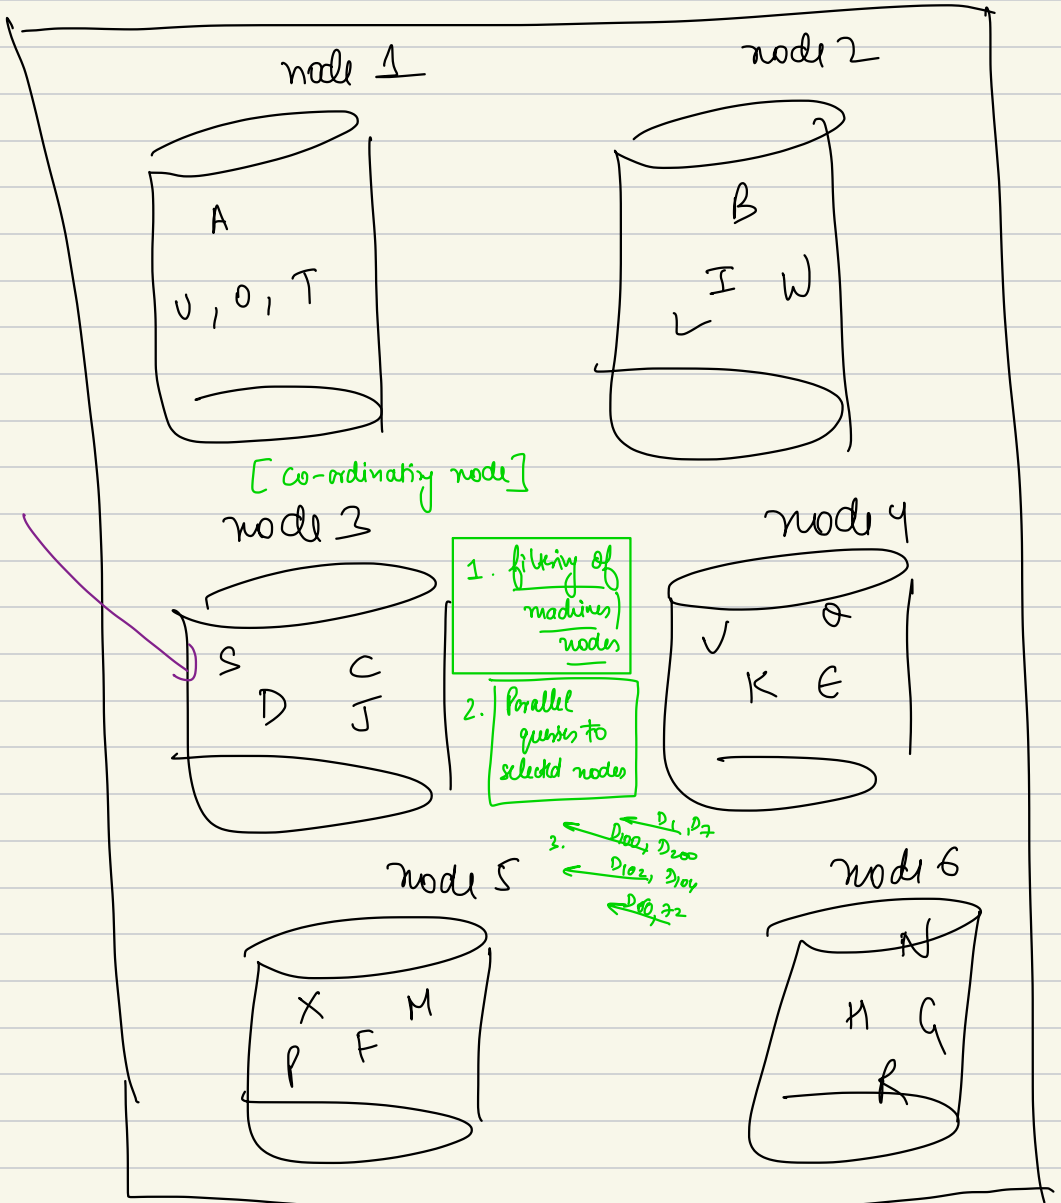 node 1
node 2
A
U, O, T
B
I W
L
[co-ordinating node]
node 3
node 4
S C
D J
1. filtering of
machines/
nodes
2. Parallel
queries to
selected nodes
V Q
K E
3.
D1, D7
D100, D200
D102, D104
node 5
node 6
X M
P F
N
H G
R